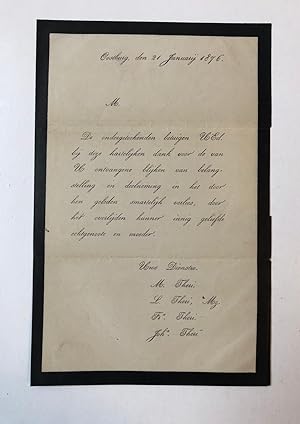 Oostburg, den 21 Januarij 1876.
M.
De ondergeteekenden betuigen UEd.
bij deze hartelijken dank voor de van
U ontvangene blijken van belang-
stelling en deelneming in het door
hen geleden smartelijk verlies, door
het overlijden hunner innig geliefde
echtgenoote en moeder.
Uwe Dienaren
M. Theri.
L. Theri,
Fs. Theri.
Joh.s Theri